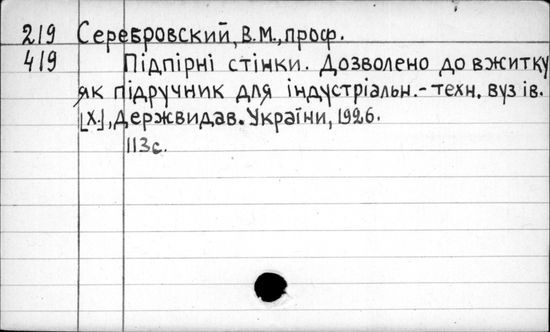 219 Серебровский, В.М., проф.
419 Підпірні стінки. Дозволено до вжитку
як підручник для індустріальн.-техн. вуз ів.
[Х.], Держвидав. України, 1926.
113с.